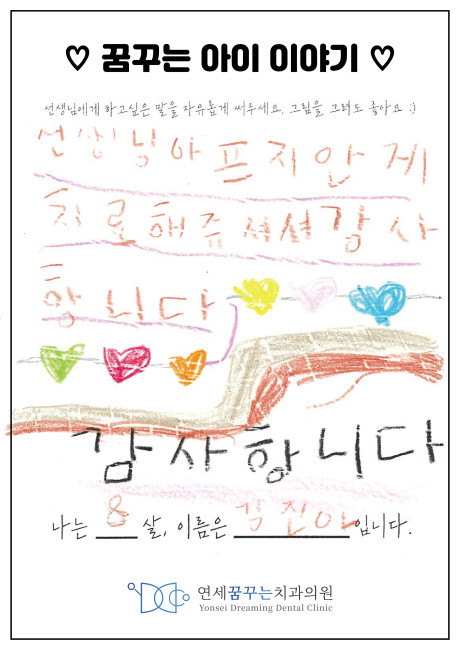 ♡ 꿈꾸는 아이 이야기 ♡
선생님에게 하고싶은 말을 자유롭게 써주세요. 그림을 그려도 좋아요 :)
선생님아프지안게
치료해쥬셔셔감사
합니다
감사합니다
나는 8 살, 이름은 김진아 입니다.
연세꿈꾸는치과의원
Yonsei Dreaming Dental Clinic